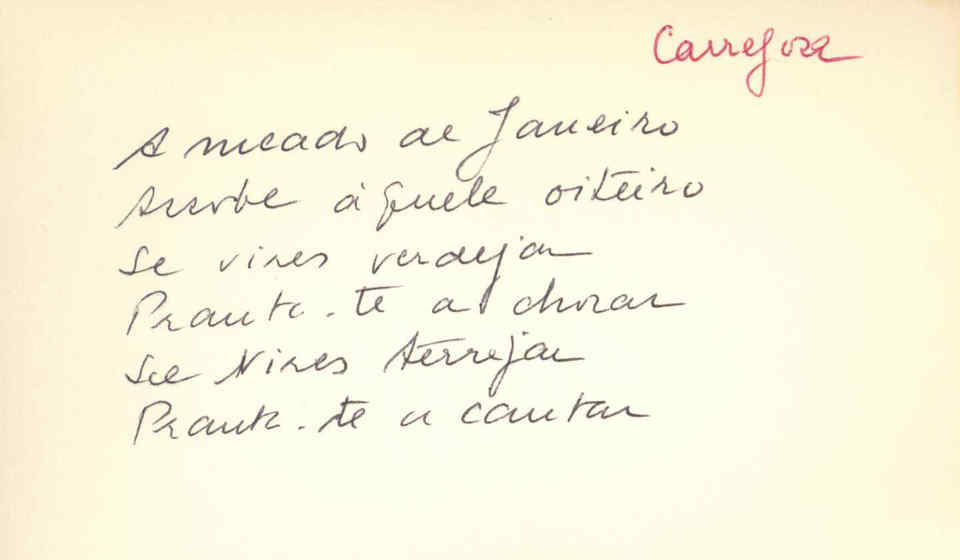 Carregosa
A meado de Janeiro
Assobe àquele oiteiro
Se vires verdejar
Pranta-te a chorar
Se vires terrejar
Pranta-te a cantar